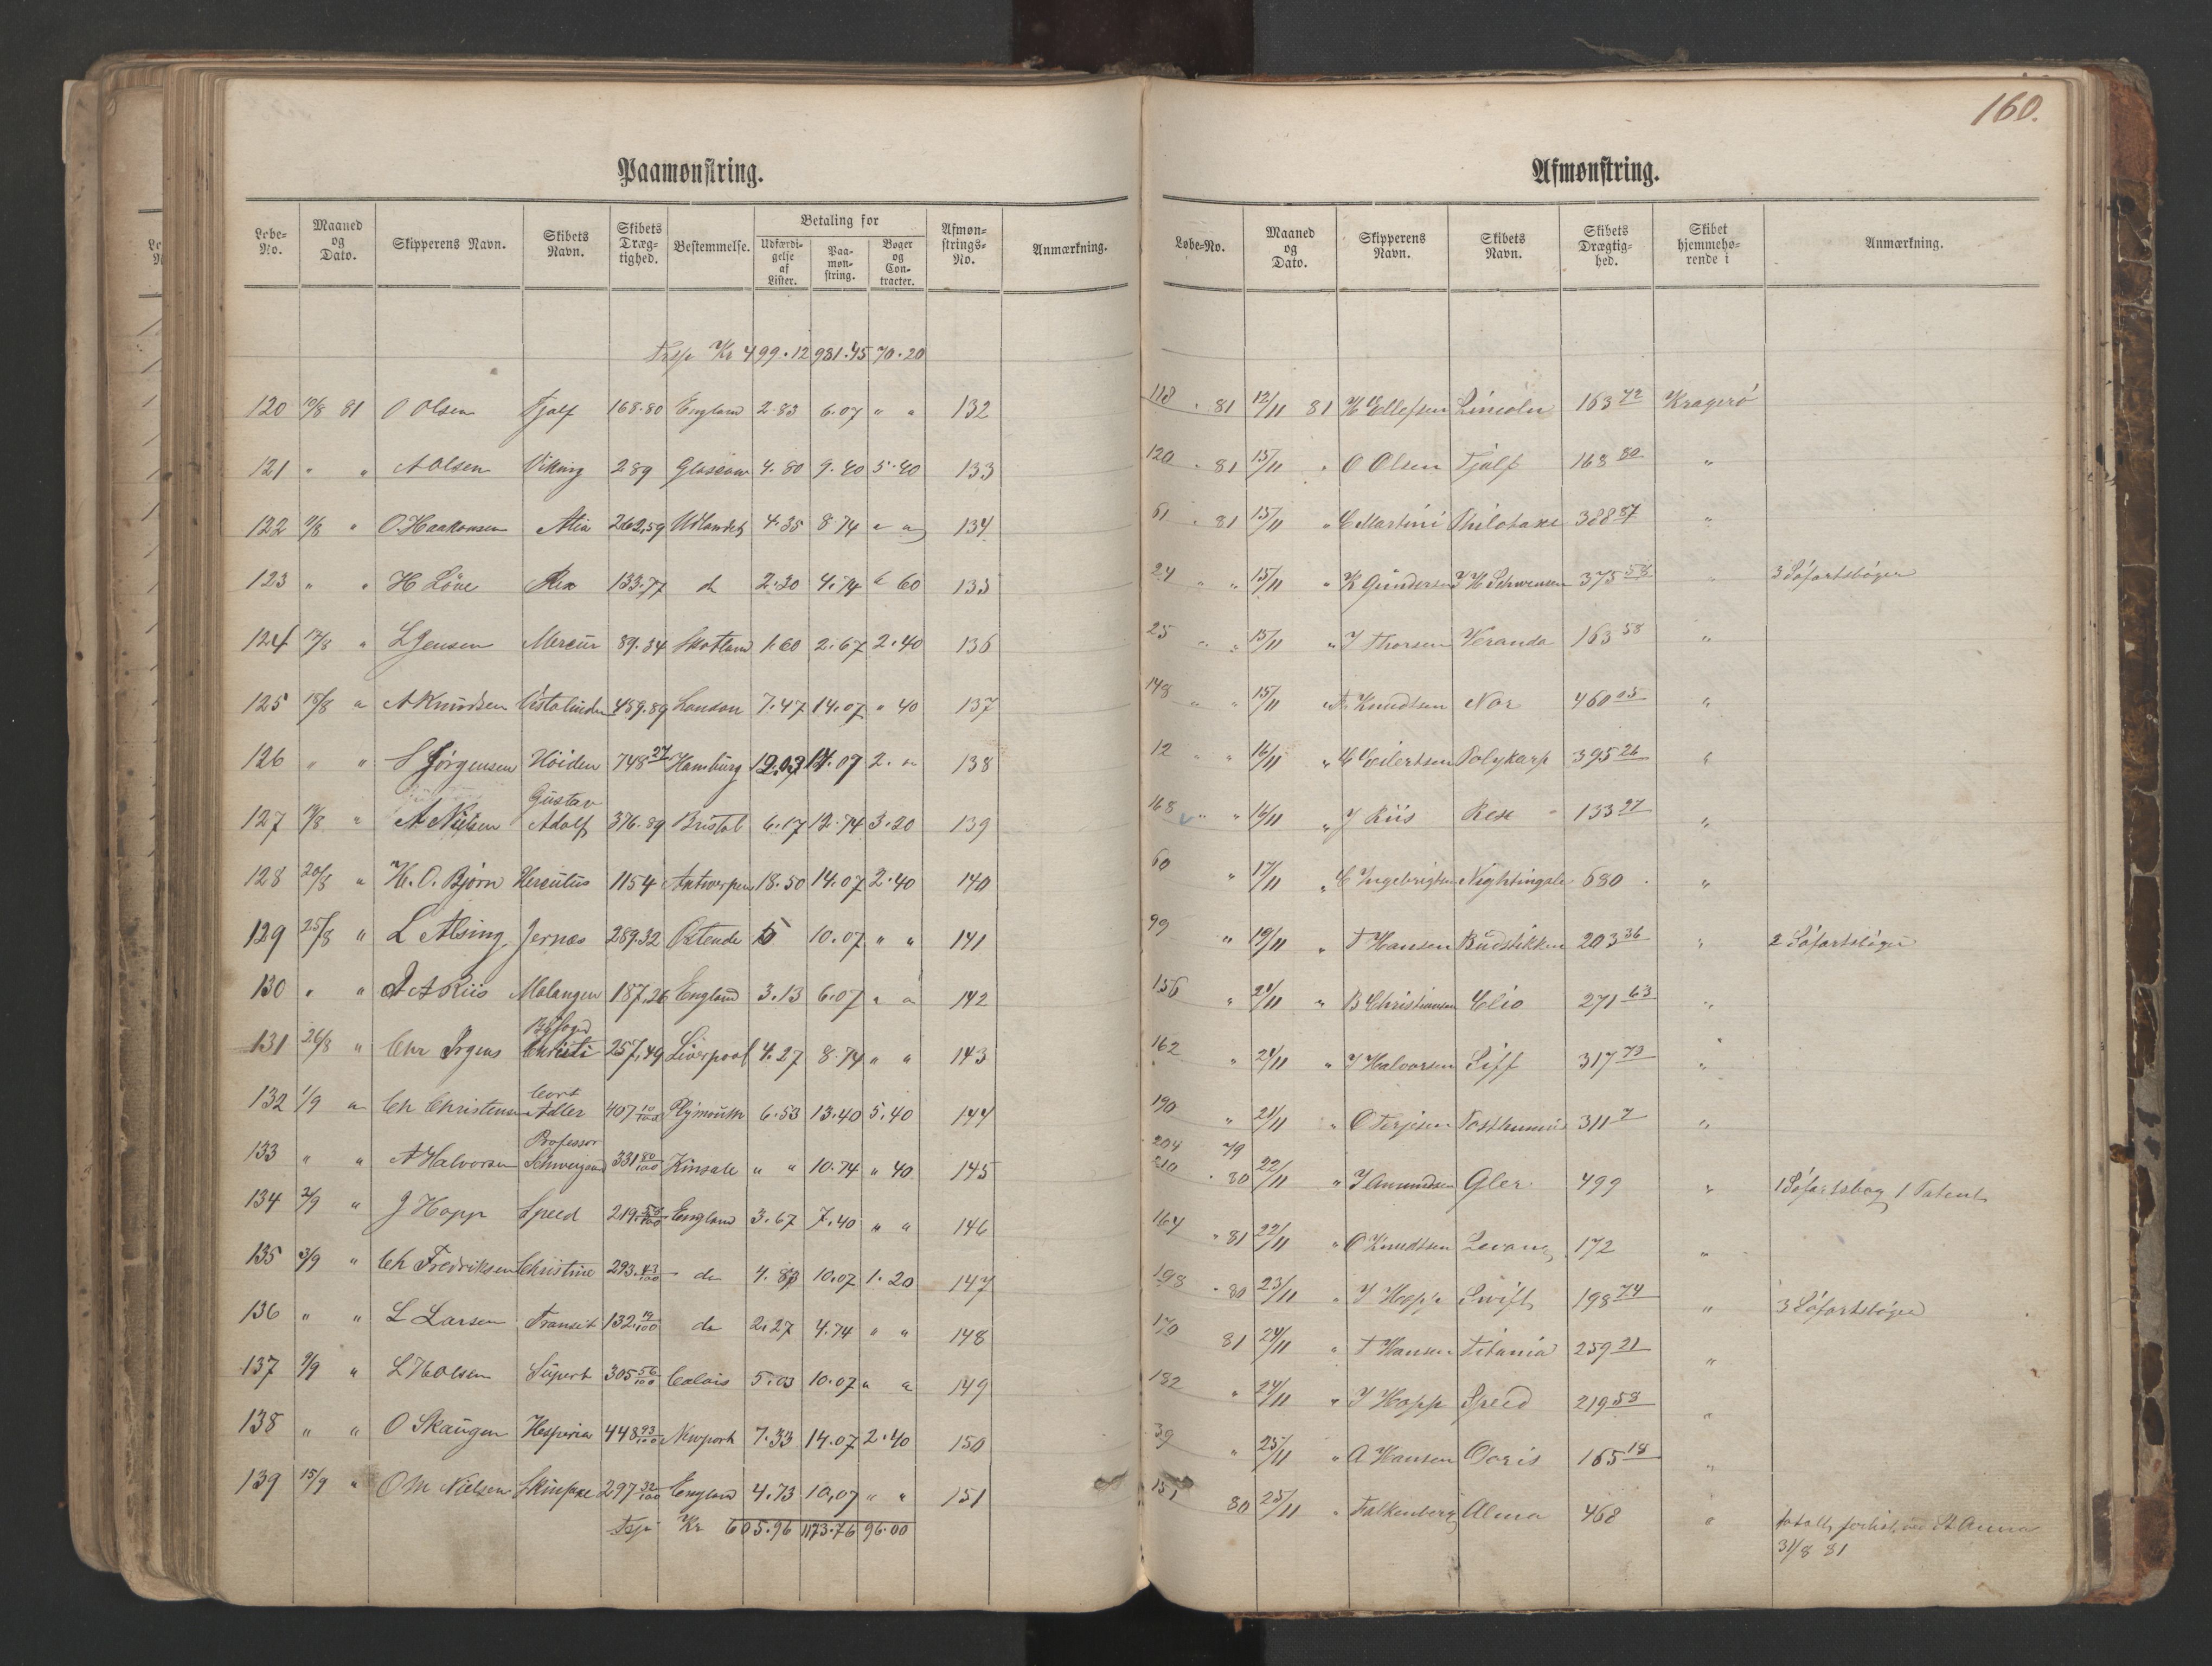 160.
Paamønstring.
Løbe-No. Maaned og Dato. Skipperens Navn. Skibets Navn. Skibets Dræg-tighed. Bestemmelse. Betaling for Udfærdi-gelse af Lister. Paa-møn-string. Bøger og Con-tracter. Afmøn-strings-No. Anmærkning.
Trsp Kr 499.12 981.45 70.20
120 10/8 81 O Olsen Tjalf 168.80 England 2.83 6.07 " " 132
121 " " A Olsen Viking 289 Glascow 4.80 9.40 5.40 133
122 " O. Haakonsen 262,59 Udlandet 4.35 8.74 " " 134
123 " " H Löve Rex 133.77 do 2.30 4.74 " 60 135
124 17/8 " L Jensen Mercur 89.34 Skotland 1.60 2.67 2.40 136
125 18/8 " A Knudsen Vistalinden 489.89 London 7.47 14.07 " 40 137
126 " " S Jörgensen Höiden 748 27 Hamburg 12.03 14.07 2. " 138
127 " A Nielsen Gustav Adolf 376.89 Bristol 6.17 12.74 3.20 139
128 20/8 " H. O. Bjørn Hercules 1154 Antwerpen 18.50 14.07 2.40 140
129 25/8 " L Alsing Jernæs 289.32 Ostende 5 10.07 " " 141
130 " " A Riis Malangen 187,26 England 3.13 6.07 " " 142
131 26/8 " Chr Irgens Byfoged Christi 257,49 Liverpool 4.27 8.74 " " 143
132 1/9 " Ch Christensen Cort Adler 407 10/100 Plymouth 6.53 13.40 5.40 144
133 " " A Halvorsen Professor Schweigaard 331 80/100 Kinsale " " 10.74 " 40 145
134 2/9 " J Hopp Speed 219. 58/100 England 3.67 7.40 " " 146
135 3/9 " Ch Fredriksen Christine 293. 43/100 do 4.80 10.07 1.20 147
136 " " L Larsen Transit 132. 19/100 do 2.27 4.74 " " 148
137 9/9 " L H Olsen 305 56/100 Calais 5.03 10.07 " " 149
138 " " O Skaugen Hesperia 448 93/100 Newport 7.33 14.07 2.40 150
139 15/9 " O M Nielsen 297 32/100 England 4.73 10,07 " " 151
Trsp Kr 605.96 1173.76 96.00
Afmønstring.
Løbe-No. Maaned og Dato. Skipperens Navn. Skibets Navn. Skibets Drægtig-hed. Skibet hjemmehø-rende i Anmærkning.
118 " 81 12/11 81 H Ellefsen Lincoln 163 72 Kragerö
120 " 81 15/11 " O Olsen Tjalf 168 80 "
61 " 81 15/11 " C Martini 388 87 "
24 " " 15/11 " K Gundersen J H Schwensen 375 58 " 3 Söfartsböger
25 " " 15/11 " J Thorsen Veranda 163 58 "
148 " " 15/11 " A Knudtsen Nor 460 05 "
12 " " 16/11 " C Eilertsen Polykarp 395 26 "
168 " " 16/11 " J Riis Rex 133 97 "
60 " 17/11 " C Ingebrigtsen Nightingale 680 . "
99 " 19/11 " T Hansen Budstikken 203 36 " 2 Söfartsböger
156 " 21/11 " B Christiansen Clio 271 63 "
162 " 21/11 " J Halvorsen Siff 317 73 "
190 " 21/11 " O Terjesen Posthumus 311 7 "
204 79
210 " 80 22/11 " J Amundsen Gler 499 " 1 Söfartsbog 1 Patent
164 " 81 22/11 " O Knudtsen Levang 172 "
198 " 80 23/11 " J Hopp Swift 198 74 " 3 Söfartsböger
170 81 24/11 " T Hansen Titania 259 21 "
182 " 24/11 " J Hopp Speed 219 58 "
39 " 25/11 " A Hansen Doris 165 18 "
151 80 25/11 " Falkenberg Alma 468 " totalt forlist ved St Anna
31/8 81